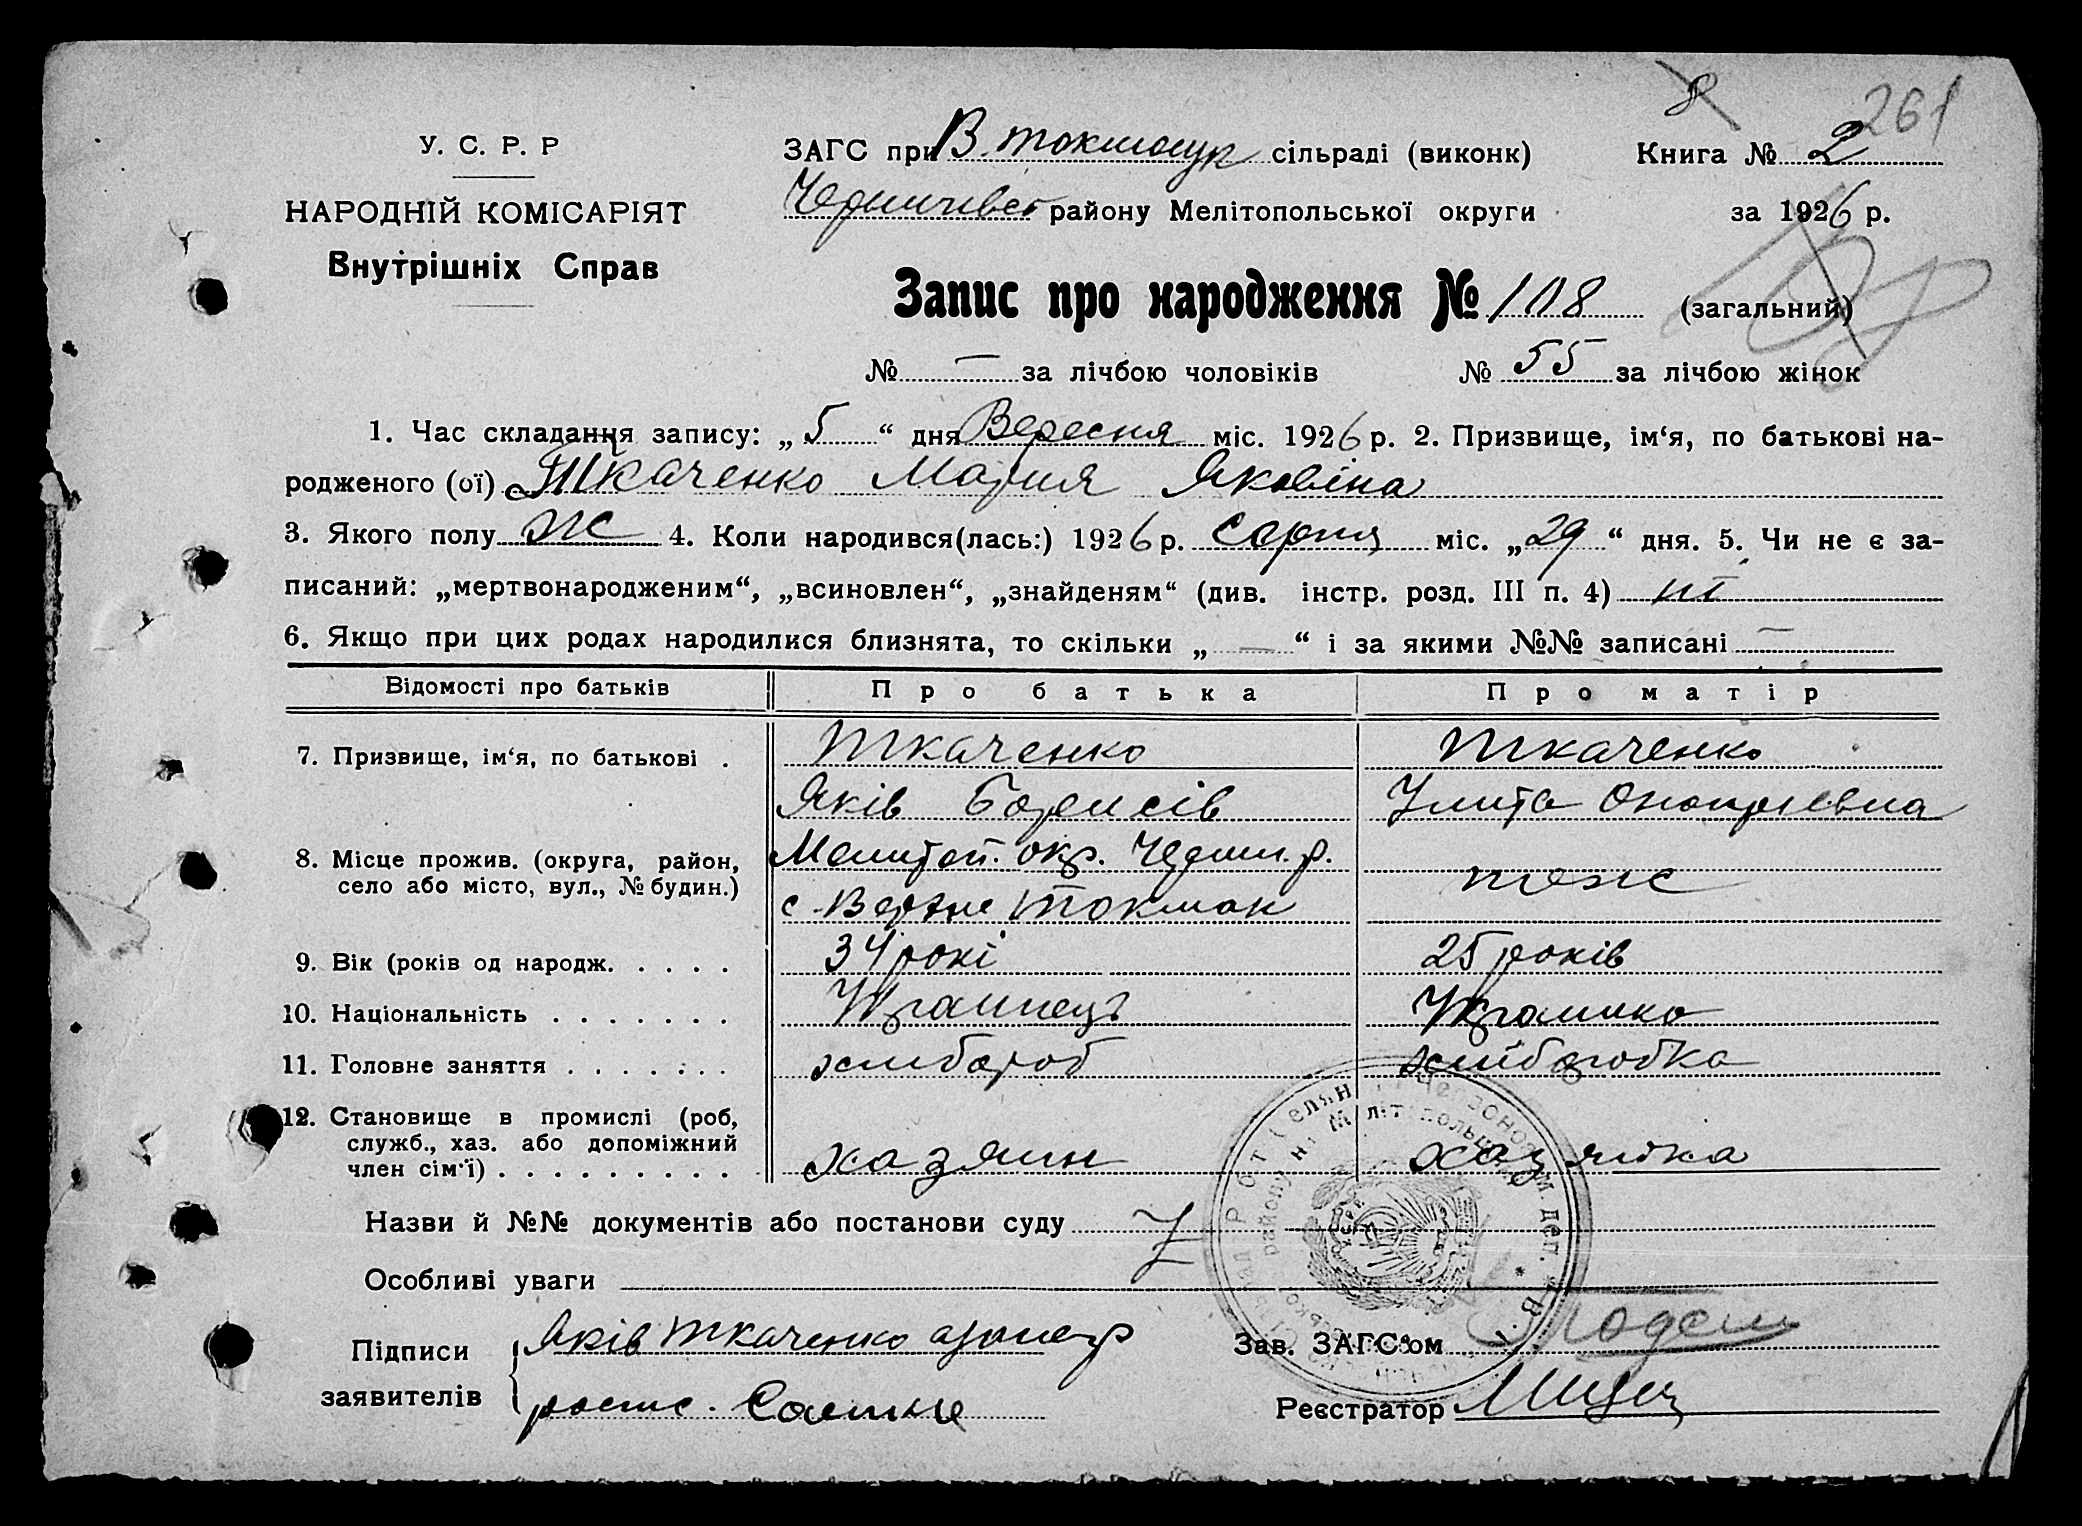 261
У. С. Р. Р
ЗАГС при В. Токмацун сільраді (виконк) Книга № 2
НАРОДНІЙ КОМІСАРІЯТ
району Мелітопольської округи за 1926 р.
Внутрішніх Справ
Запис про народження № 108 (загальний)
№ — за лічбою чоловіків № 55 за лічбою жінок
1. Час складання запису: „5“ дня Вересня міс. 1926 р. 2. Призвище, ім‘я, по батькові на-
родженого (ої) Ткаченко Мария Яковіна
3. Якого полу Ж 4. Коли народився(лась:) 1926 р. Серпц міс. „29“ дня. 5. Чи не є за-
писаний: „мертвонародженим“, „всиновлен“, „знайденям“ (див. інстр. розд. III п. 4) ні
6. Якщо при цих родах народилися близнята, то скільки „—“ і за якими №№ записані —
Відомості про батьків Про батька Про матір
7. Призвище, ім‘я, по батькові . Ткаченко Ткаченко
Яків Борисів Улита
8. Місце прожив. (округа, район, Мелитоп. окр. Черниг. р. тоже
село або місто, вул., № будин.) с. Верхне Токмак
9. Вік (років од народж. . . . . 34 рокі 25 років
10. Національність . . . . . . . Украинець Украинка
11. Головне заняття . . . . . . . хлибороб хлиборобка
12. Становище в промислі (роб,
служб., хаз. або допоміжний
член сім‘ї) . . . . . . . . . хазяин хазяйка
Назви й №№ документів або постанови суду
Особливі уваги
Підписи Яків Ткаченко Зав. ЗАГС‘ом
заявителів Реєстратор